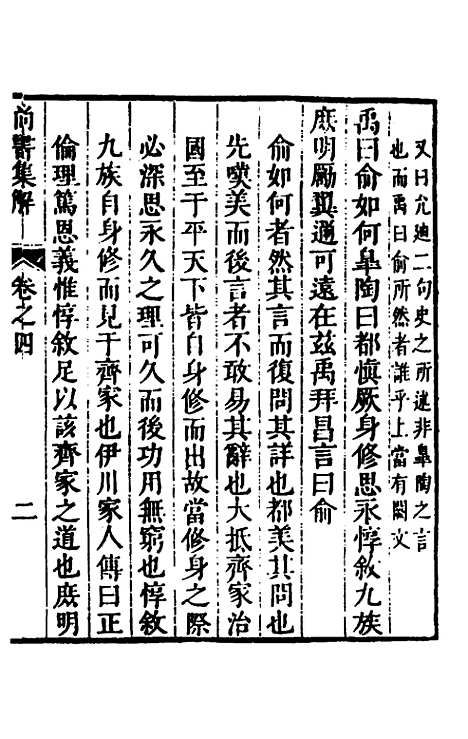 又曰允迪二句史之所述非皐陶之言
也而禹曰俞所然者誰乎上當有闕文
禹曰俞如何皐陶曰都愼厥身修思永惇敘九族
庶明勵翼邇可遠在兹禹拜昌言曰俞
俞如何者然其言而復問其詳也都美其問也
先嘆美而後言者不敢易其辭也大抵齊家治
國至于平天下皆自身修而出故當修身之際
必深思永久之理可久而後功用無窮也惇敘
九族自身修而見于齊家也伊川家人傳曰正
倫理篤恩義惟惇敘足以該齊家之道也庶明
尚書集解
卷之四
二